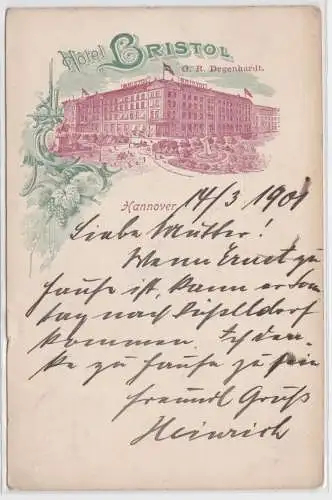 Hôtel Bristol
O. R. Degenhardt.
Hannover, 14/3 1901
Liebe Mutter!
Wenn Ernst zu
hause ist, kann er Sonn
tag nach Düsseldorf
kommen. Ich den-
ke zu hause zu sein
freundl Gruß
Heinrich